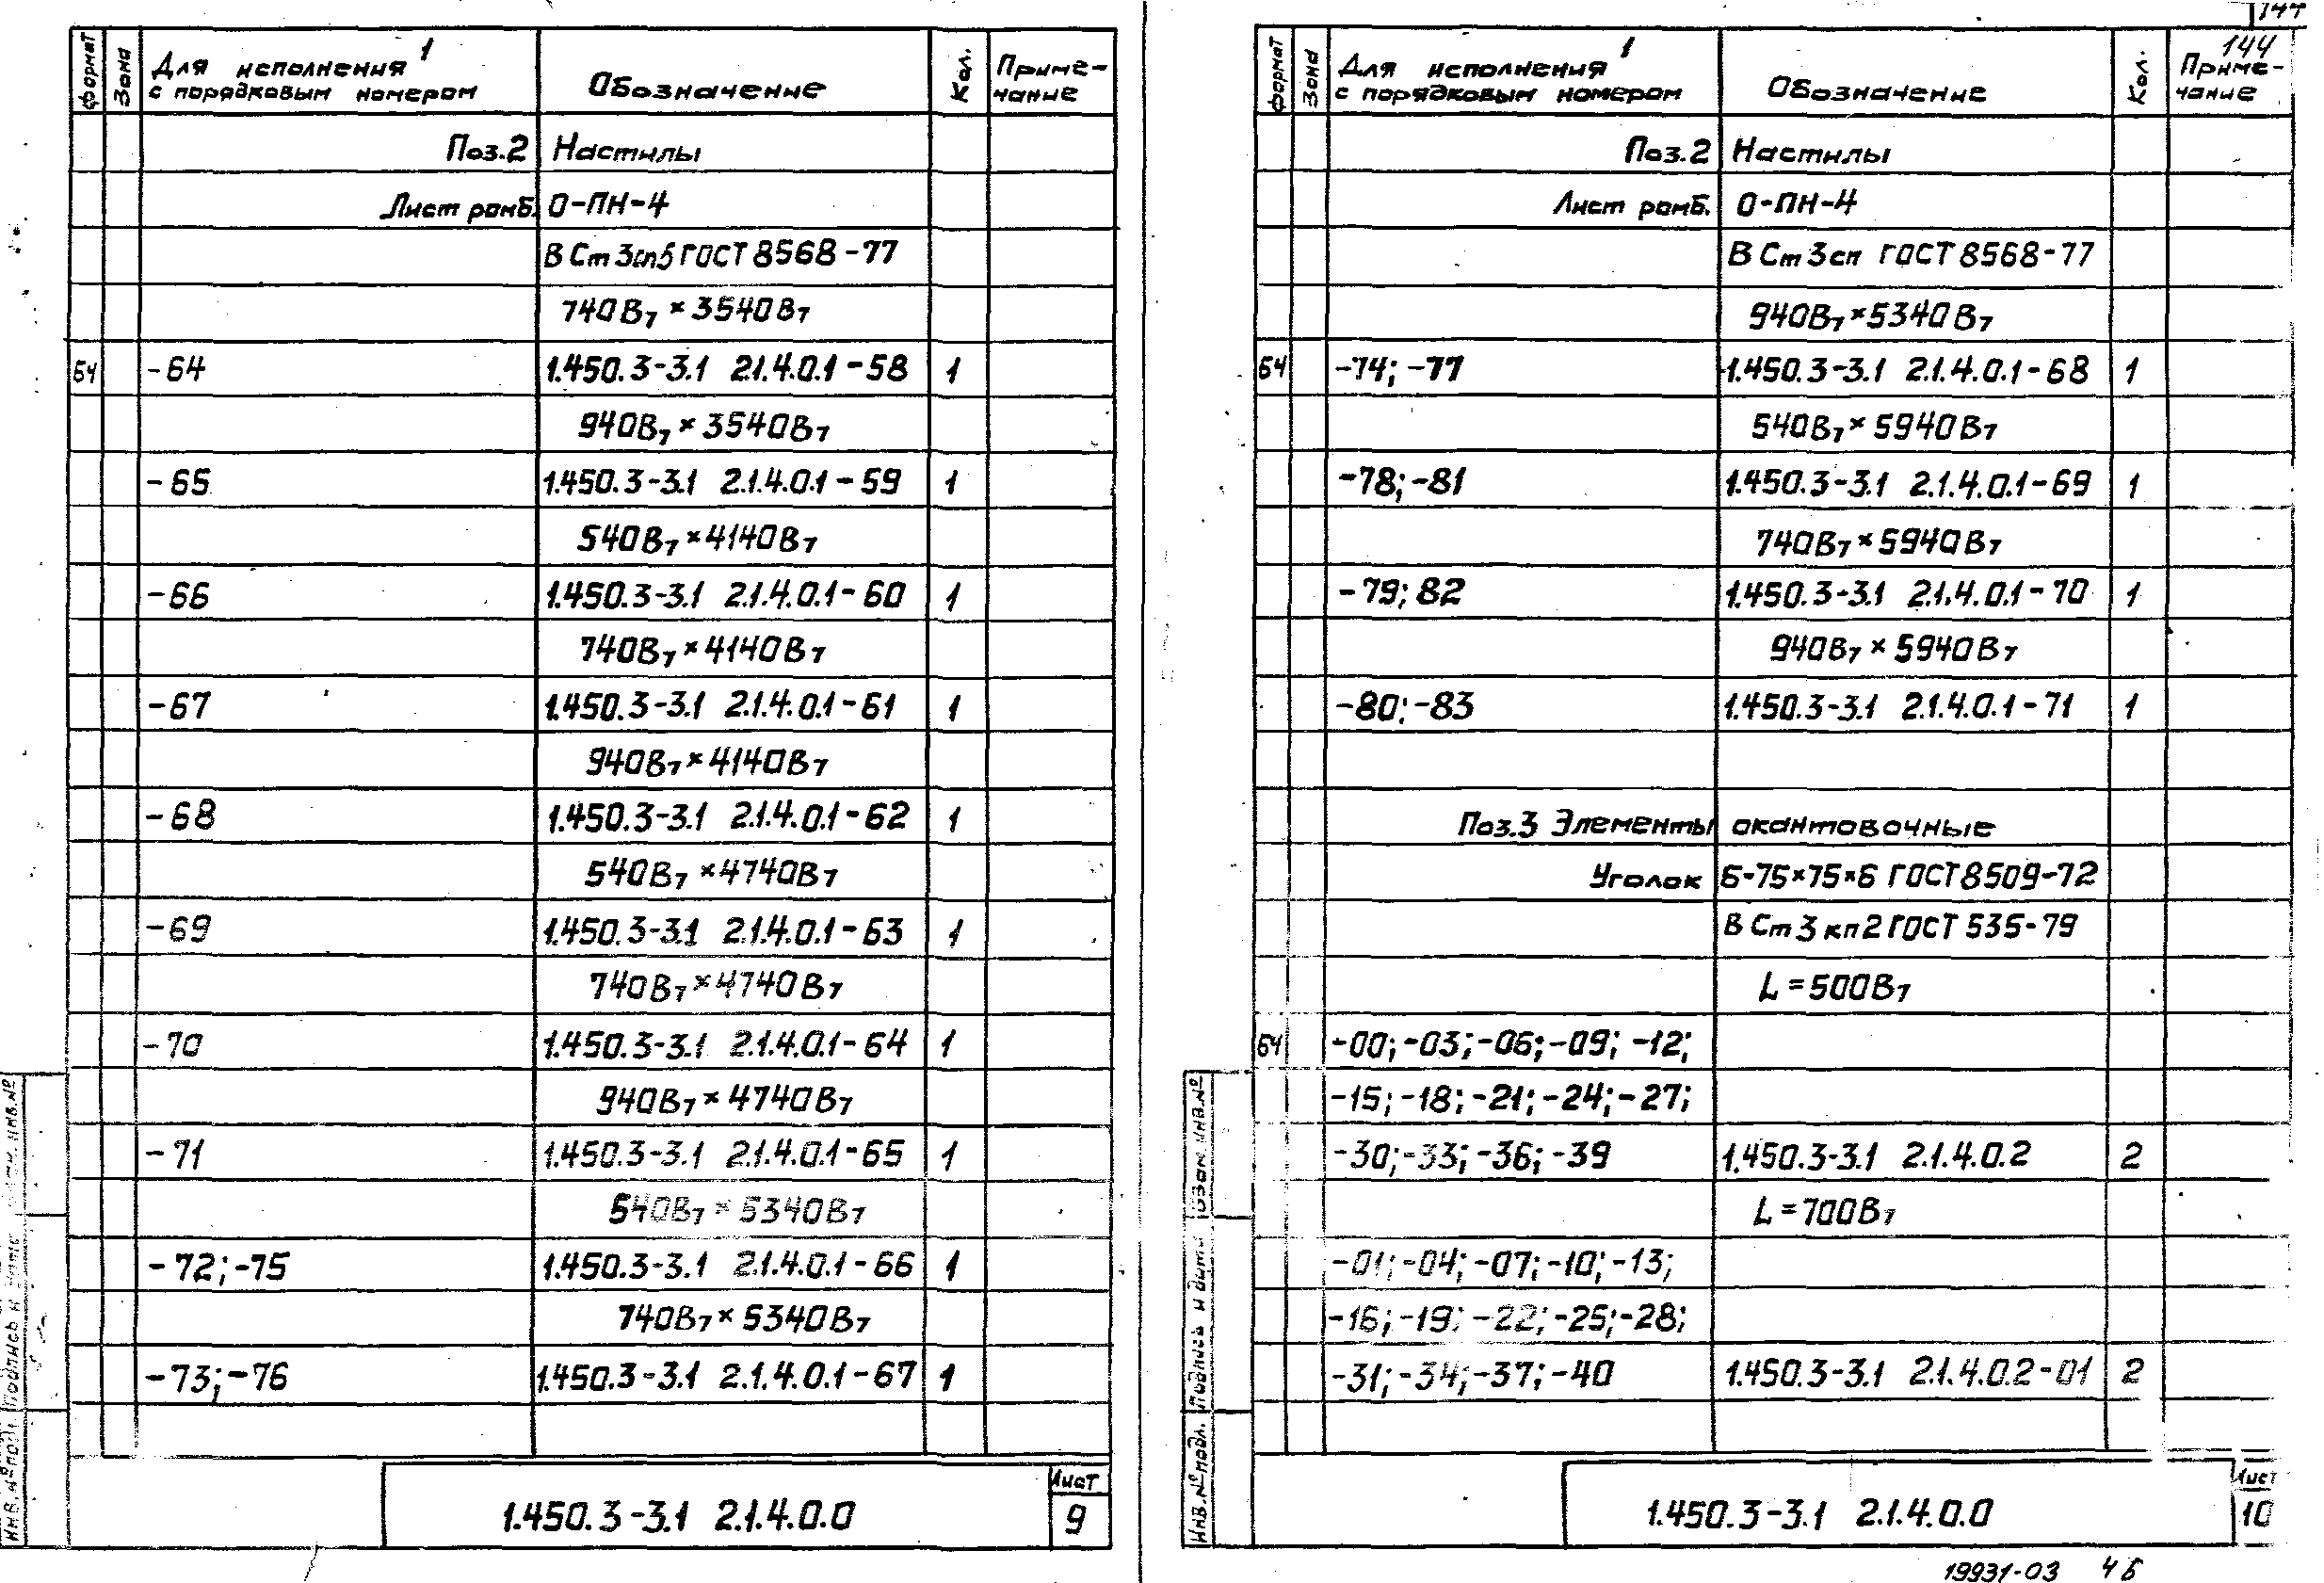 формат Зона Для исполнения 1 Обозначение Кол. Приме-
с порядковым номером чание
Поз.2 Настилы
Лист ромб. О-ПН-4
В Ст 3сп5 ГОСТ 8568-77
740В7 × 3540В7
БЧ -64 1.450.3-3.1 2.1.4.0.1-58 1
940В7 × 3540В7
-65 1.450.3-3.1 2.1.4.0.1-59 1
540В7 × 4140В7
-66 1.450.3-3.1 2.1.4.0.1-60 1
740В7 × 4140В7
-67 1.450.3-3.1 2.1.4.0.1-61 1
940В7 × 4140В7
-68 1.450.3-3.1 2.1.4.0.1-62 1
540В7 × 4740В7
-69 1.450.3-3.1 2.1.4.0.1-63 1
740В7 × 4740В7
-70 1.450.3-3.1 2.1.4.0.1-64 1
940В7 × 4740В7
-71 1.450.3-3.1 2.1.4.0.1-65 1
540В7 × 5340В7
-72; -75 1.450.3-3.1 2.1.4.0.1-66 1
740В7 × 5340В7
-73; -76 1.450.3-3.1 2.1.4.0.1-67 1
1.450.3-3.1 2.1.4.0.0
Лист
9
Инв.№ подл. Подпись и инв.№
144
144
формат Зона Для исполнения 1 Обозначение Кол. Приме-
с порядковым номером чание
Поз.2 Настилы
Лист ромб. О-ПН-4
В Ст 3сп ГОСТ 8568-77
940В7 × 5340В7
БЧ -74; -77 1.450.3-3.1 2.1.4.0.1-68 1
540В7 × 5940В7
-78; -81 1.450.3-3.1 2.1.4.0.1-69 1
740В7 × 5940В7
-79; 82 1.450.3-3.1 2.1.4.0.1-70 1
940В7 × 5940В7
-80; -83 1.450.3-3.1 2.1.4.0.1-71 1
Поз.3 Элементы окантовочные
Уголок Б-75×75×6 ГОСТ 8509-72
В Ст 3 кп2 ГОСТ 535-79
L = 500В7
БЧ -00; -03; -06; -09; -12;
-15; -18; -21; -24; -27;
-30; -33; -36; -39 1.450.3-3.1 2.1.4.0.2 2
L = 700В7
-01; -04; -07; -10; -13;
-16; -19; -22; -25; -28;
-31; -34; -37; -40 1.450.3-3.1 2.1.4.0.2-01 2
1.450.3-3.1 2.1.4.0.0
Лист
10
Инв.№ подл. Подпись и дата Взам. инв.№
19931-03 46